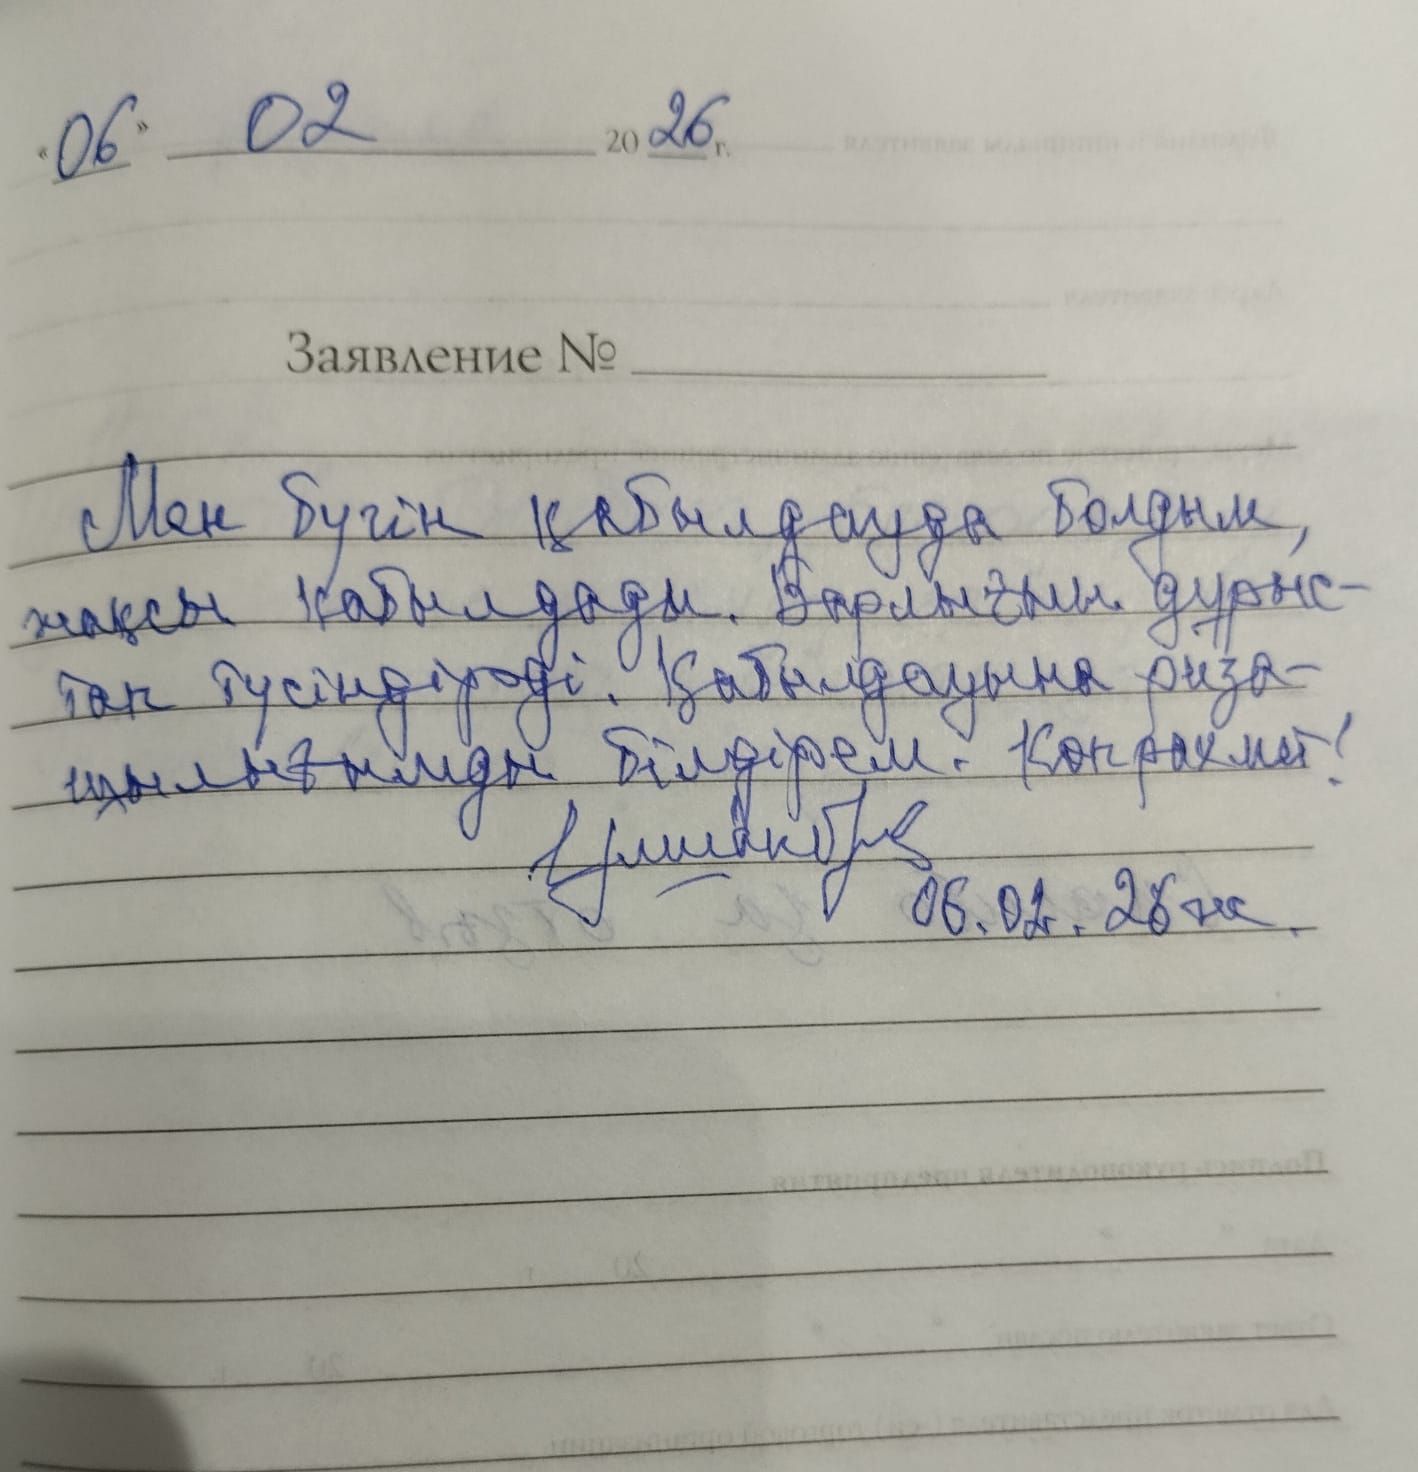 «06» 02 2026 г.
Заявление №
Мен бүгін қабылдауда болдым,
жақсы қабылдады. Барлығын дұрыс-
тап түсіндіреді. Қабылдауына риза-
шылығымды білдірем. Көп рахмет!
06.02.26 ж.